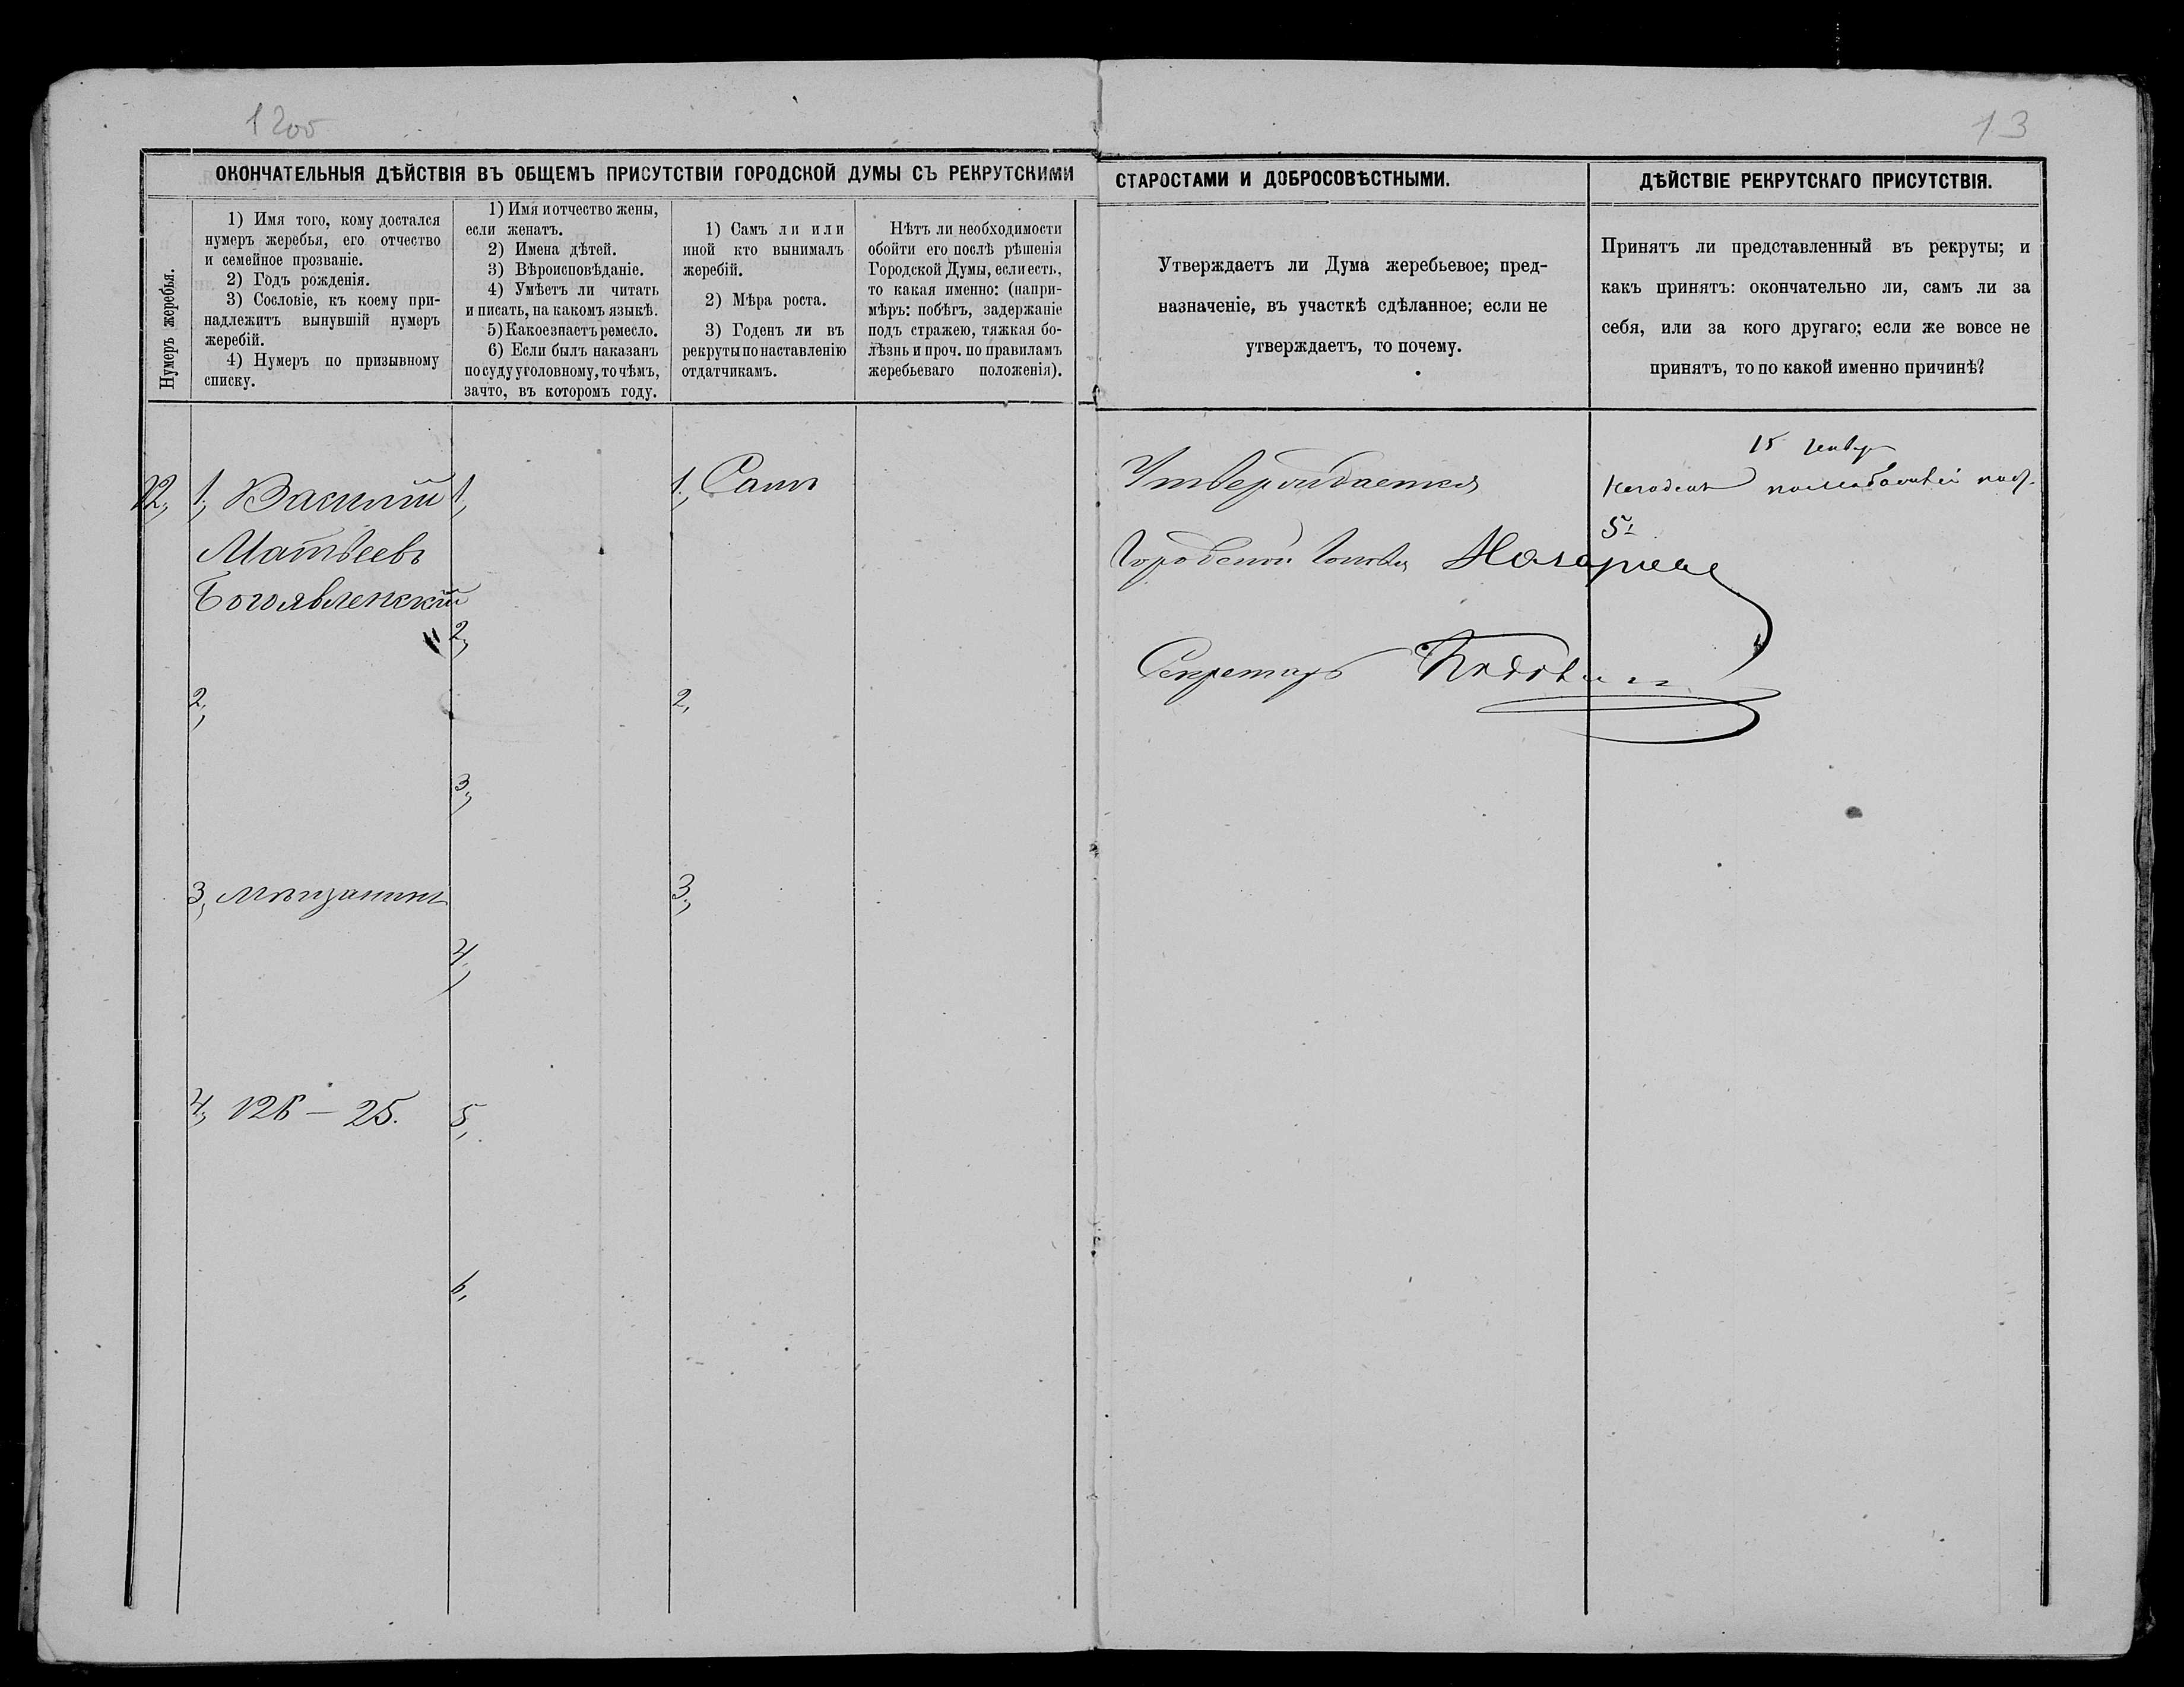 1200
13
ОКОНЧАТЕЛЬНЫЯ ДѢЙСТВІЯ ВЪ ОБЩЕМЪ ПРИСУТСТВІИ ГОРОДСКОЙ ДУМЫ СЪ РЕКРУТСКИМИ
СТАРОСТАМИ И ДОБРОСОВѢСТНЫМИ.
ДѢЙСТВІЕ РЕКРУТСКАГО ПРИСУТСТВІЯ.
Нумеръ жеребья.
1) Имя того, кому достался
нумеръ жеребья, его отчество
и семейное прозваніе.
2) Годъ рожденія.
3) Сословіе, къ коему при-
надлежитъ вынувшій нумеръ
жеребій.
4) Нумеръ по призывному
списку.
1) Имя и отчество жены,
если женатъ.
2) Имена дѣтей.
3) Вѣроисповѣданіе.
4) Умѣетъ ли читать
и писать, на какомъ языкѣ.
5) Какое знаетъ ремесло.
6) Если былъ наказанъ
по суду уголовному, то чѣмъ,
за что, въ которомъ году.
1) Самъ ли или
иной кто вынималъ
жеребій.
2) Мѣра роста.
3) Годенъ ли въ
рекруты по наставленію
отдатчикамъ.
Нѣтъ ли необходимости
обойти его послѣ рѣшенія
Городской Думы, если есть,
то какая именно: (напри-
мѣръ: побѣгъ, задержаніе
подъ стражею, тяжкая бо-
лѣзнь и проч. по правиламъ
жеребьеваго положенія).
Утверждаетъ ли Дума жеребьевое; пред-
назначеніе, въ участкѣ сдѣланное; если не
утверждаетъ, то почему.
Принятъ ли представленный въ рекруты; и
какъ принятъ: окончательно ли, самъ ли за
себя, или за кого другаго; если же вовсе не
принятъ, то по какой именно причинѣ?
12,
1, Василій
Матвѣевъ
Богоявленскій
2,
3, мѣщанинъ
4, 126 — 25.
1,
2,
3,
4,
5,
6,
1, Самъ
2,
3,
Утверждается
Городской Голова
Секретарь
15 Генвар
Негоденъ